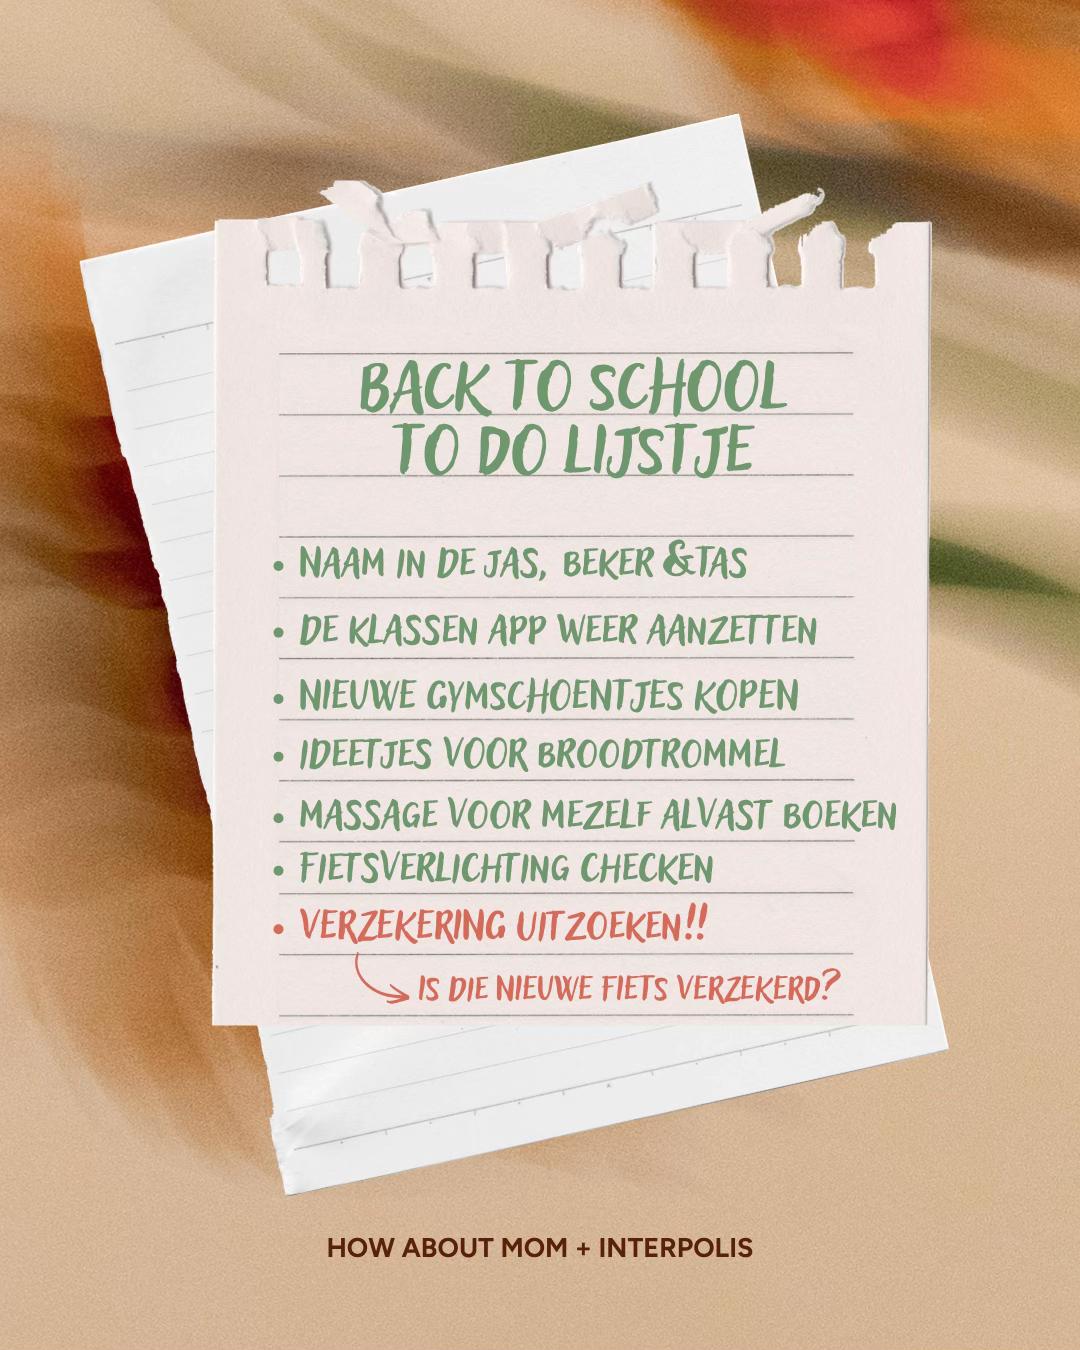 BACK TO SCHOOL
TO DO LIJSTJE
• NAAM IN DE JAS, BEKER & TAS
• DE KLASSEN APP WEER AANZETTEN
• NIEUWE GYMSCHOENTJES KOPEN
• IDEETJES VOOR BROODTROMMEL
• MASSAGE VOOR MEZELF ALVAST BOEKEN
• FIETSVERLICHTING CHECKEN
• VERZEKERING UITZOEKEN!!
IS DIE NIEUWE FIETS VERZEKERD?
HOW ABOUT MOM + INTERPOLIS